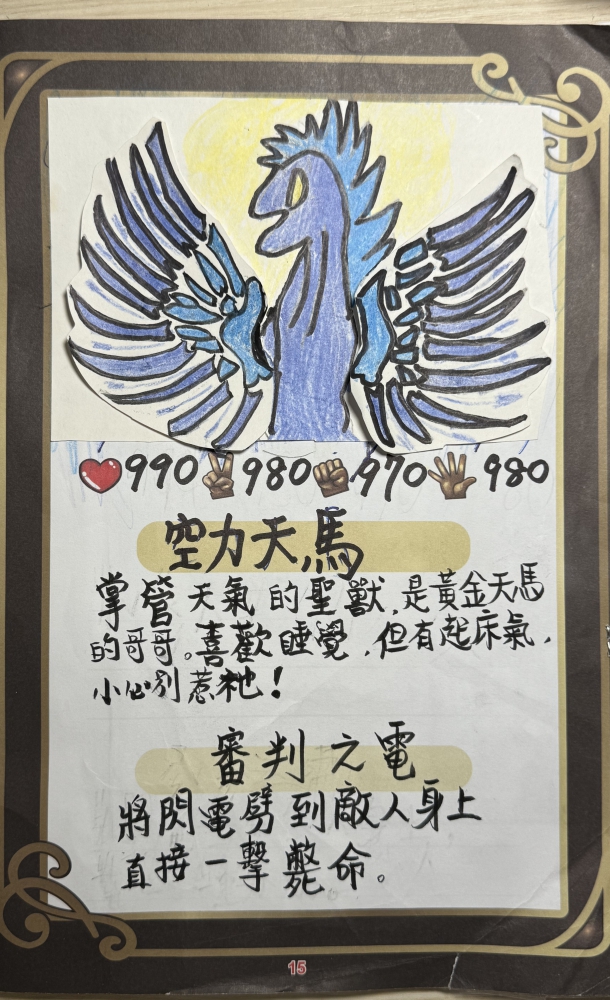 ❤️990✌️980✊970🖐️980
空力天馬
掌管天氣的聖獸,是黃金天馬
的哥哥。喜歡睡覺,但有起床氣,
小心別惹牠!
審判之電
將閃電劈到敵人身上
直接一擊斃命。
15